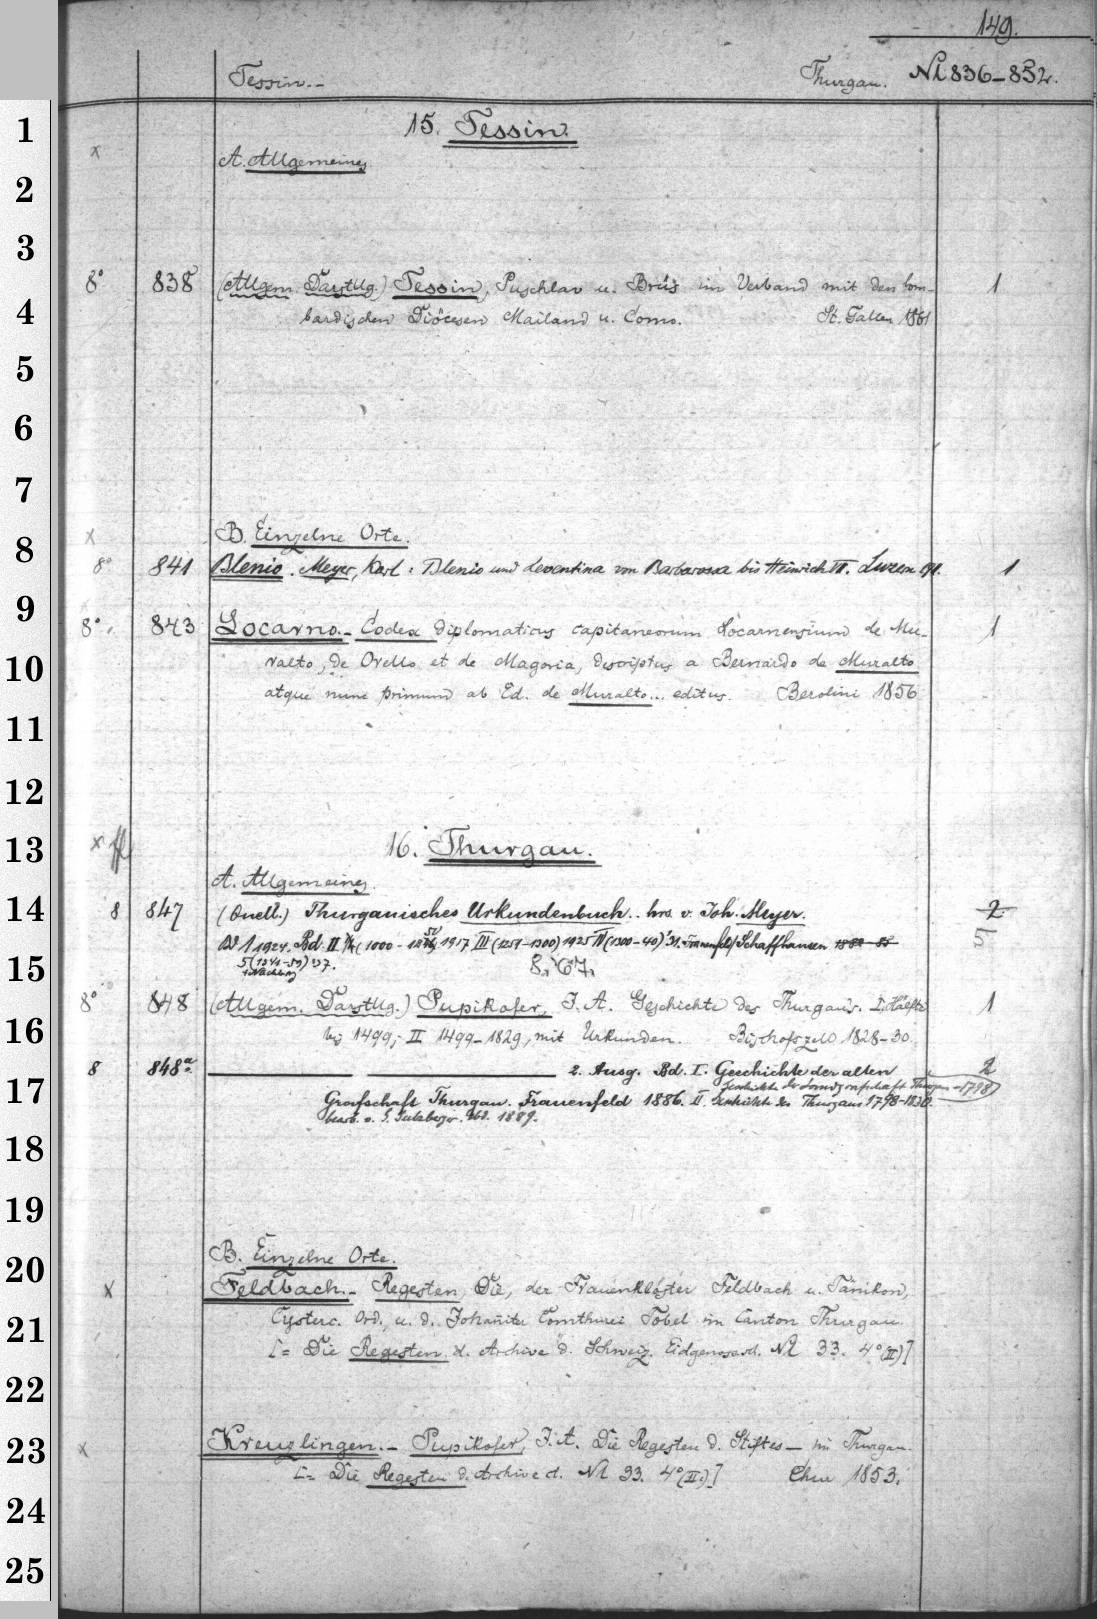 149.
Tessin.-
Thurgau. Nl 836-852.
1
15. Tessin.
x
A. Allgemeines
2
3
8° 838 (Allgem. Darstllg.) Tessin, Puschlav u. Brüs im Verband mit den lom- 1
4
bardischen Diöcesen Mailand u. Como. St. Gallen 1861
5
6
7
x B. Einzelne Orte.
8
8° 841 Blenio. Meyer, Karl: Blenio und Leventina von Barbarossa bis Heinrich VII. Luzern 1911. 1
9
8° 843 Locarno.- Codex diplomaticus capitaneorum Locarnensium de Mu- 1
10
ralto, de Orello et de Magoria, descriptus a Bernardo de Muralto
atque nunc primum ab Ed. de Muralto... editus. Berolini 1856
11
12
13
x 16. Thurgau.
A. Allgemeines
14
8 847 (Quell.) Thurgauisches Urkundenbuch.. hrs. v. Joh. Meyer. 2
Bd 1 1924. Bd. II (1000-1250) 1917 III (1251-1300) 1925 IV (1300-40) '31. Frauenfeld/Schaffhausen 1882-85 5
15
5 (1341-50) '37. 8,'67,
+ Nachtrag
8° 848 (Allgem. Darstllg.) Pupikofer, J. A. Geschichte des Thurgau's. I. Hälfte 1
16
bis 1499;- II 1499-1829, mit Urkunden. Bischofszell 1828-30.
8 848a. 2. Ausg. Bd. I. Geschichte der alten 2
17
Geschichte der Landgrafschaft Thurgau -1798
Grafschaft Thurgau. Frauenfeld 1886. II. Geschichte des Thurgaus 1798-1830.
bearb. v. Ebd. 1889.
18
19
20
B. Einzelne Orte.
x Feldbach.- Regesten, Die, der Frauenklöster Feldbach u. Tänikon,
21
Cysterc. Ord., u. d. Johaniter Comthurei Tobel im Canton Thurgau.
[= Die Regesten d. Archive d. Schweiz. Eidgenossensch. Nl 33. 4° (II)]
22
23
x Kreuzlingen.- Pupikofer, J. A. Die Regesten d. Stiftes — im Thurgau.
[= Die Regesten d. Archive d. Nl 33. 4° (II.)] Chur 1853.
24
25